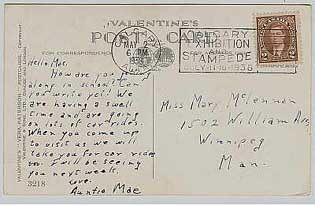 VALENTINE'S
POST CARD
FOR CORRESPONDENCE
MAY 2
6 PM
1938
CALGARY
EXHIBITION
AND
STAMPEDE
JULY 11-16-1938
Hello Mae.
How are you getting
along in school? Can
you write yet? We
are having a swell
time and are going
on lots of car rides.
When you come up
to visit us we will
take you for car rides
too. I will be seeing
you next week.
Love.
Auntie Mae
3218
Miss Mary McLennon
1502 William Ave,
Winnipeg
Man.